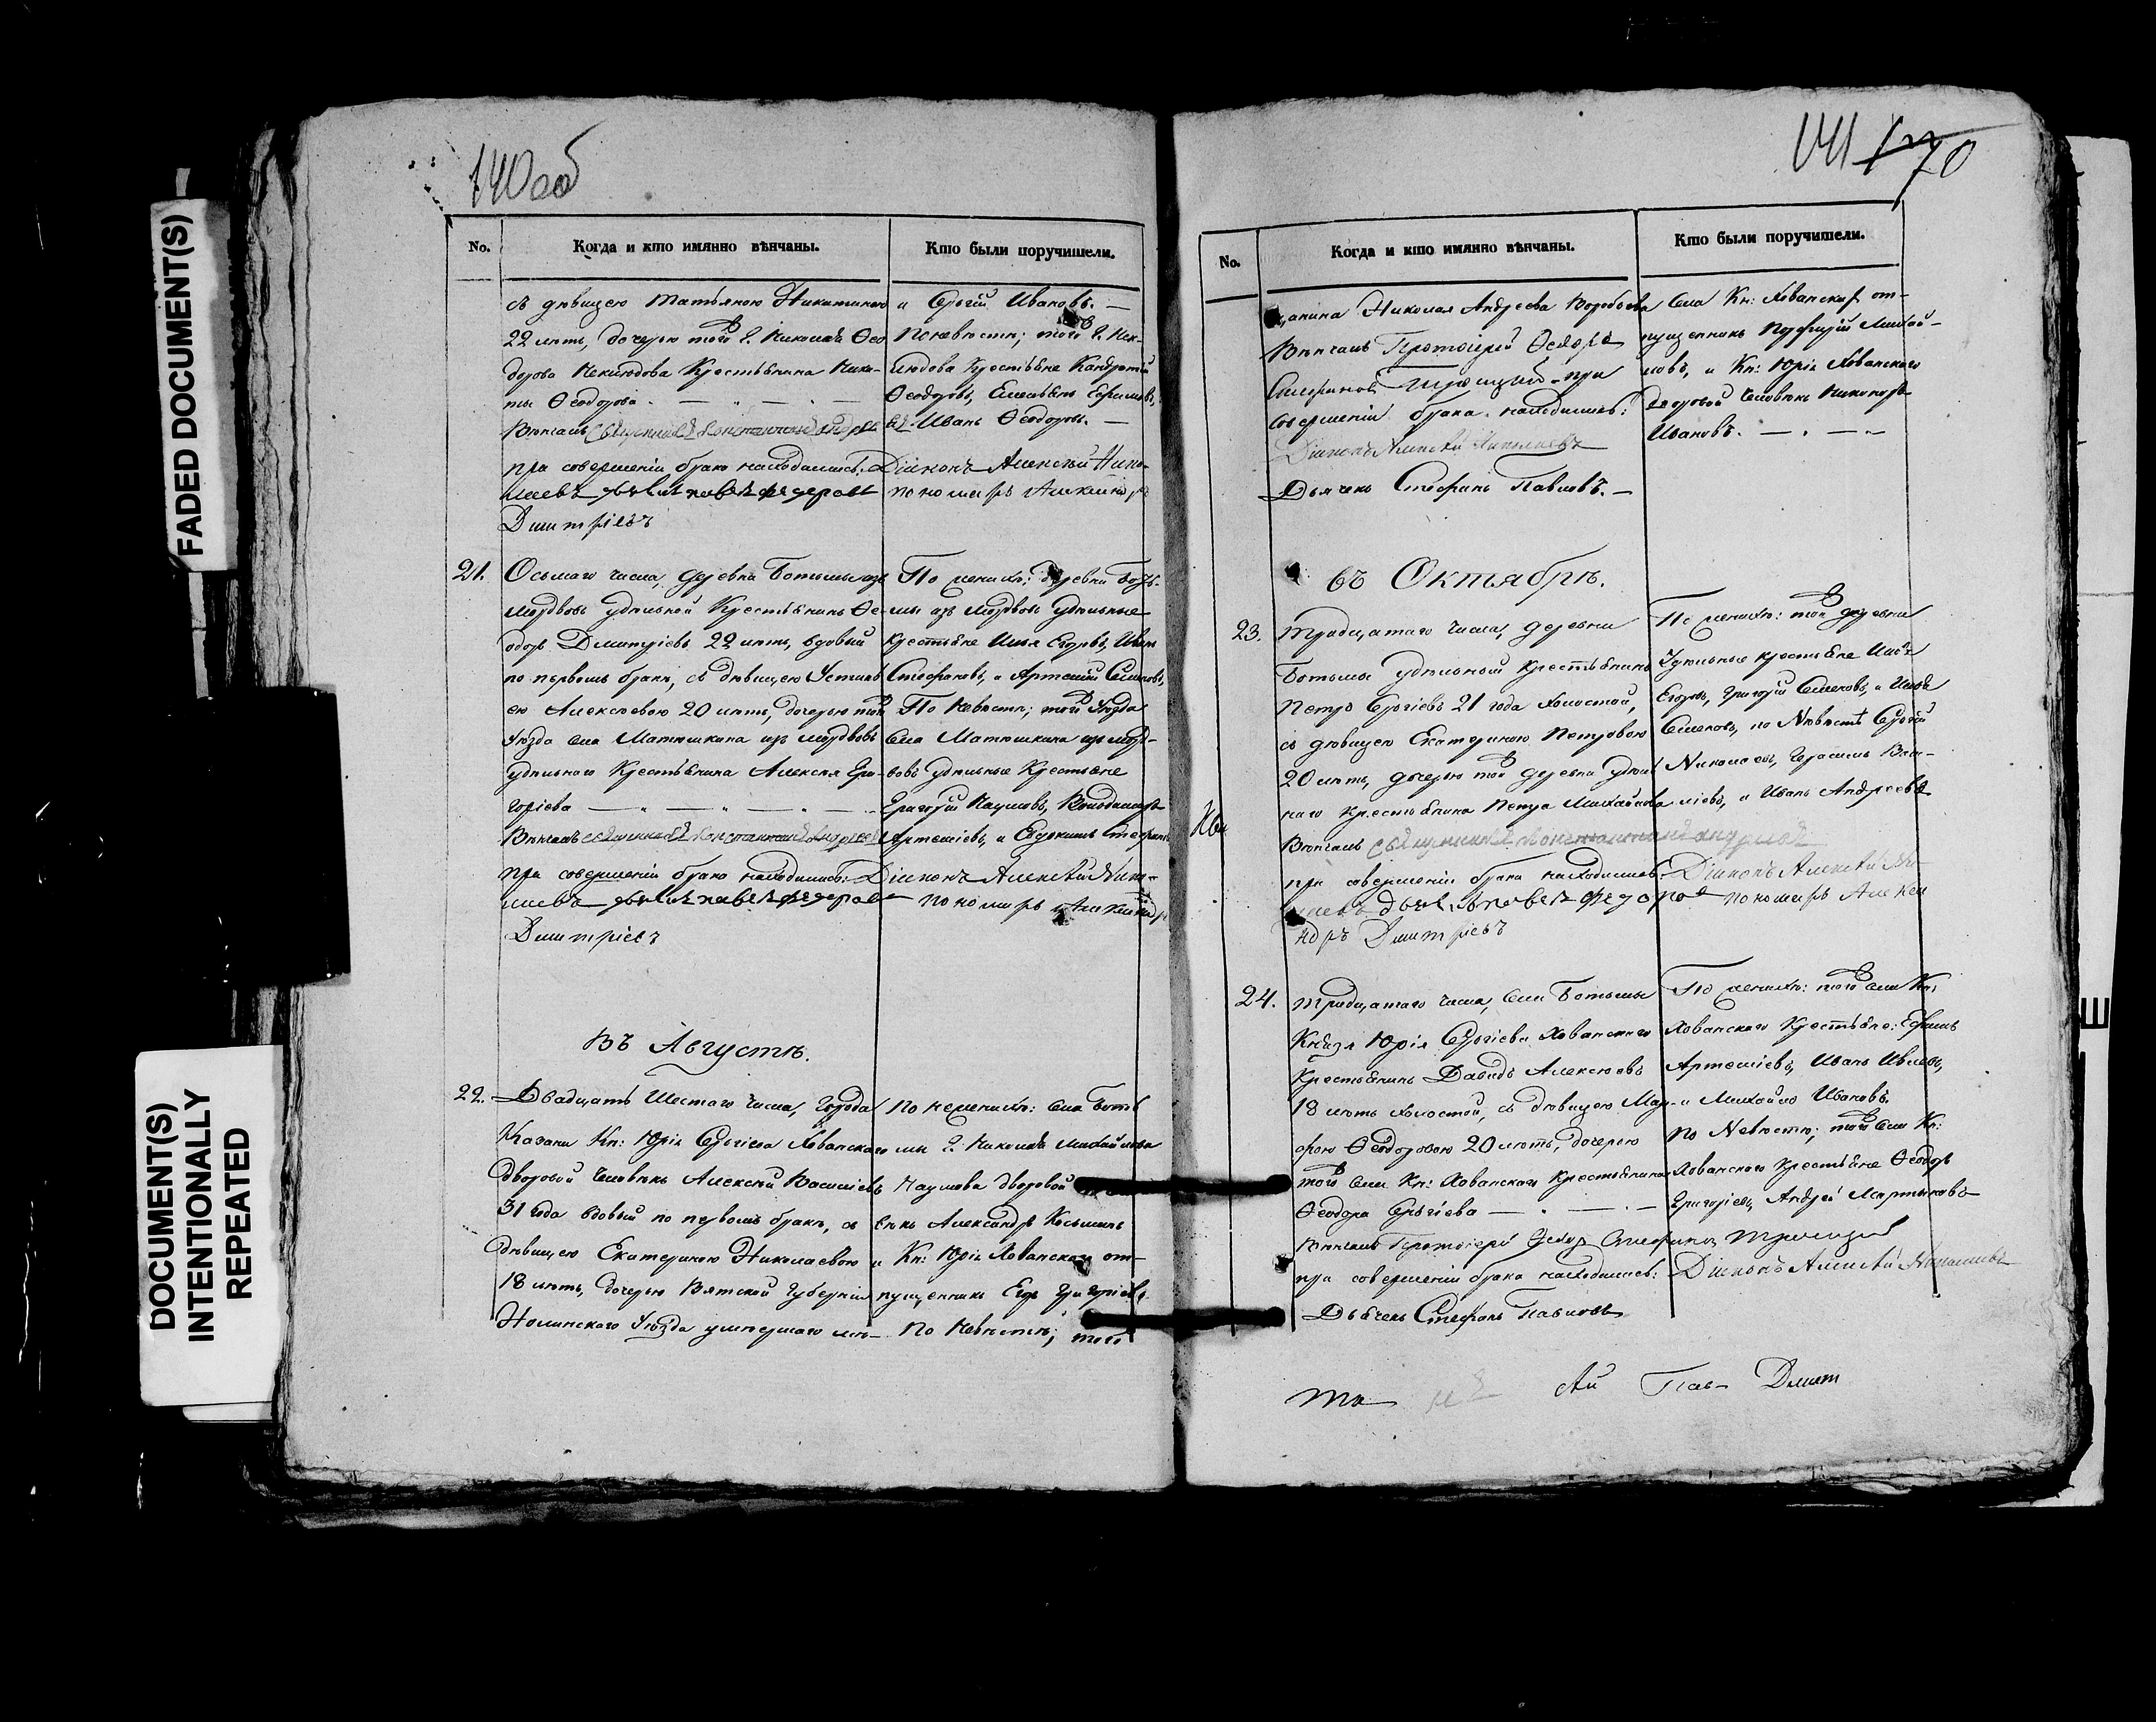 FADED DOCUMENT(S)
DOCUMENT(S)
INTENTIONALLY
REPEATED
140 об
No.
Когда и кто имянно вѣнчаны.
Кто были поручители.
съ дѣвицею Татьяною Никитиною
22 лѣтъ, дочерью той г. Николая Ѳео
дорова Неклюдова Крестьянина Ники-
ты Ѳеодорова.
Вѣнчалъ священникъ Константинъ Андреевъ
при совершеніи брака находились: Діаконъ Алексѣй Нико-
лаевъ дьячекъ Павелъ Федоровъ пономарь Александръ
Дмитріевъ
и Сергій Ивановъ.
По невѣстѣ; того г. Нек-
людова Крестьяне Кандратій
Ѳеодоровъ, Емельянъ Ефимовъ,
Иванъ Ѳеодоровъ.
21.
Осьмаго числа, деревни Ботьмы изъ
мордвовъ удѣльной Крестьянинъ Ѳе-
одоръ Дмитріевъ 22 лѣтъ, вдовый
по первомъ бракѣ, съ дѣвицею Устинь
ею Алексѣевою 20 лѣтъ, дочерью того
Уѣзда села Матюшкина изъ мордвовъ
удѣльнаго Крестьянина Алексѣя Гри-
горіева
Вѣнчалъ священникъ Константинъ Андреевъ
при совершеніи брака находились: Діаконъ Алексѣй Нико-
лаевъ дьячекъ Павелъ Федоровъ пономарь Александръ
Дмитріевъ
По женихѣ: деревни Боть-
мы изъ мордвовъ удѣльные
Крестьяне Илья Егоровъ, Иванъ
Стефановъ, и Артемій Семеновъ,
По Невѣстѣ; того Уѣзда
Села Матюшкина изъ морд-
вовъ удѣльные Крестьяне
Григорій Наумовъ, Володимиръ
Артеміевъ, и Евдокимъ Стефановъ
Въ Августѣ.
22.
Двадцать Шестаго числа, Города
Казани Кн: Юрія Сергіева Хованскаго
дворовой человѣкъ Алексѣй Васильевъ
31 года вдовый по первомъ бракѣ, съ
дѣвицею Екатериною Николаевою
18 лѣтъ, дочерью Вятской Губерніи
Нолинскаго Уѣзда умершаго мѣ-
По женихѣ: села Боть
мы г. Николая Михайлова
Наумова дворовой
вѣкъ Александръ Косьминъ
и Кн: Юрія Хованскаго от-
пущенникъ Егоръ Григорьевъ,
По Невѣстѣ; того
141 70
No.
Когда и кто имянно вѣнчаны.
Кто были поручители.
щанина Николая Андреева Воробьева
Вѣнчалъ Протоіерей Ѳеодоръ
Стефановъ Троицкій при
совершеніи брака находились:
Діаконъ Алексѣй Николаевъ
Дьячекъ Стефанъ Павловъ.
Села Кн: Хованскаго от-
пущенникъ Порфирій Михай-
ловъ, и Кн: Юрія Хованскаго
дворовой человѣкъ Никоноръ
Ивановъ.
въ Октябрѣ.
23.
Тридцатаго числа, деревни
Ботьмы удѣльный Крестьянинъ
Петръ Сергіевъ 21 года холостой,
съ дѣвицею Екатериною Петровою
20 лѣтъ, дочерью той деревни удѣль
наго крестьянина Петра Михайлова
Вѣнчалъ священникъ Константинъ Андреевъ
при совершеніи брака находились: Діаконъ Алексѣй Ни-
лаевъ дьячекъ Павелъ Федоровъ пономарь Алекса
ндръ Дмитріевъ
По женихѣ: той деревни
Удѣльные крестьяне Илья
Егоровъ, Григорій Семеновъ, и Илья
Семеновъ, по Невѣстѣ Сергій
Николаевъ, Герасимъ Васи-
ліевъ, и Иванъ Андреевъ
24.
Тридцатаго числа, Села Ботьмы
Князя Юрія Сергіева Хованскаго
Крестьянинъ Давидъ Алексѣевъ
18 лѣтъ холостой, съ дѣвицею Мар-
фою Ѳеодоровою 20 лѣтъ, дочерью
того Села Кн: Хованскаго Крестьянина
Ѳеодора Сергіева
Вѣнчалъ Протоіерей Ѳеодоръ Стефановъ Троицкій
при совершеніи брака находились: Діаконъ Алексѣй Николаевъ
Дьячекъ Стефанъ Павловъ
По женихѣ: того Села Кн:
Хованскаго Крестьяне: Ефимъ
Артеміевъ, Иванъ Ивлевъ,
и Михайло Ивановъ.
По Невѣстѣ; того Села Кн:
Хованскаго Крестьяне Ѳеодоръ
Григоріевъ, Андрей Мартыновъ
Ай Пав- Дмит